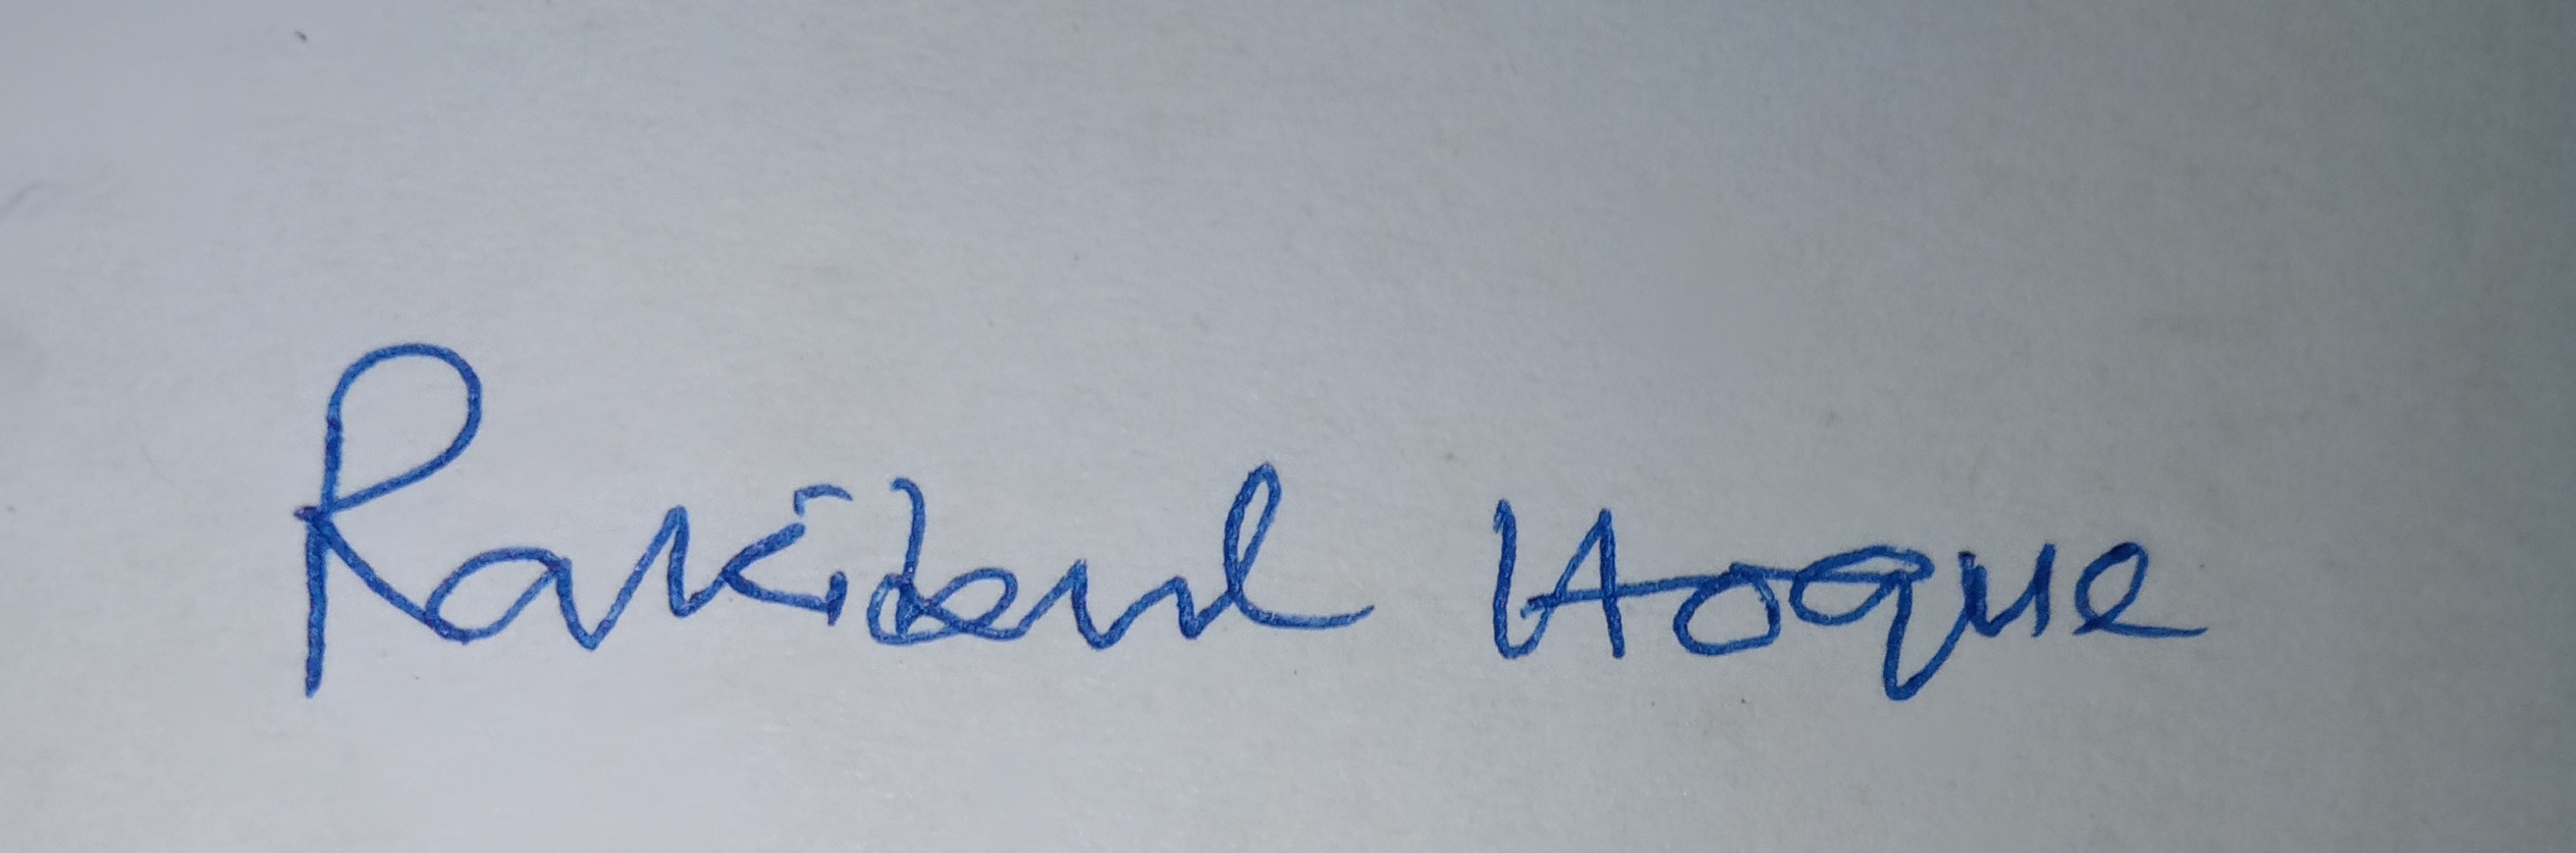 Rakibul Hoque